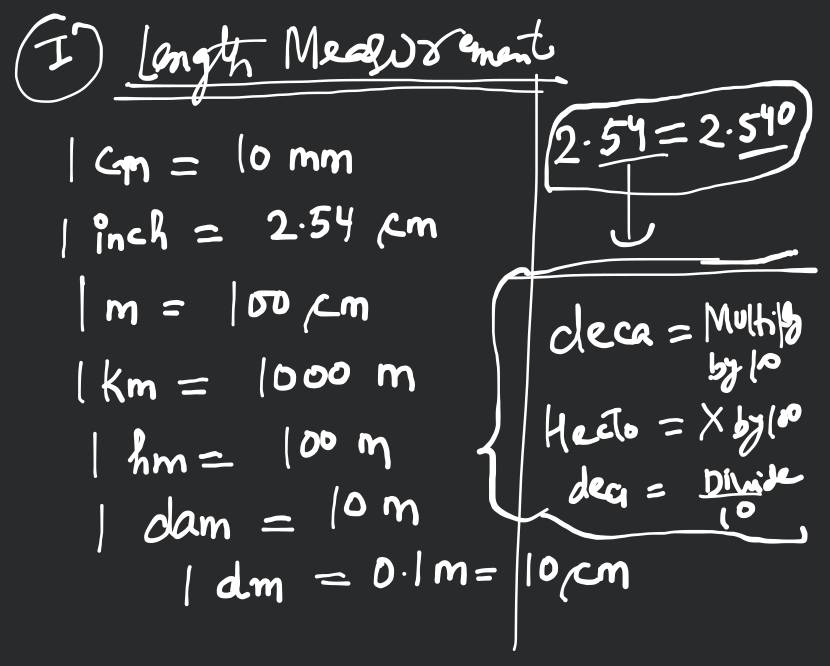 I Length Measurement
1 cm = 10 mm
1 inch = 2.54 cm
1 m = 100 cm
1 km = 1000 m
1 hm = 100 m
1 dam = 10 m
1 dm = 0.1m = 10 cm
2.54 = 2.540
deca = Multiply
by 10
Hecto = X by 100
deci = Divide
10